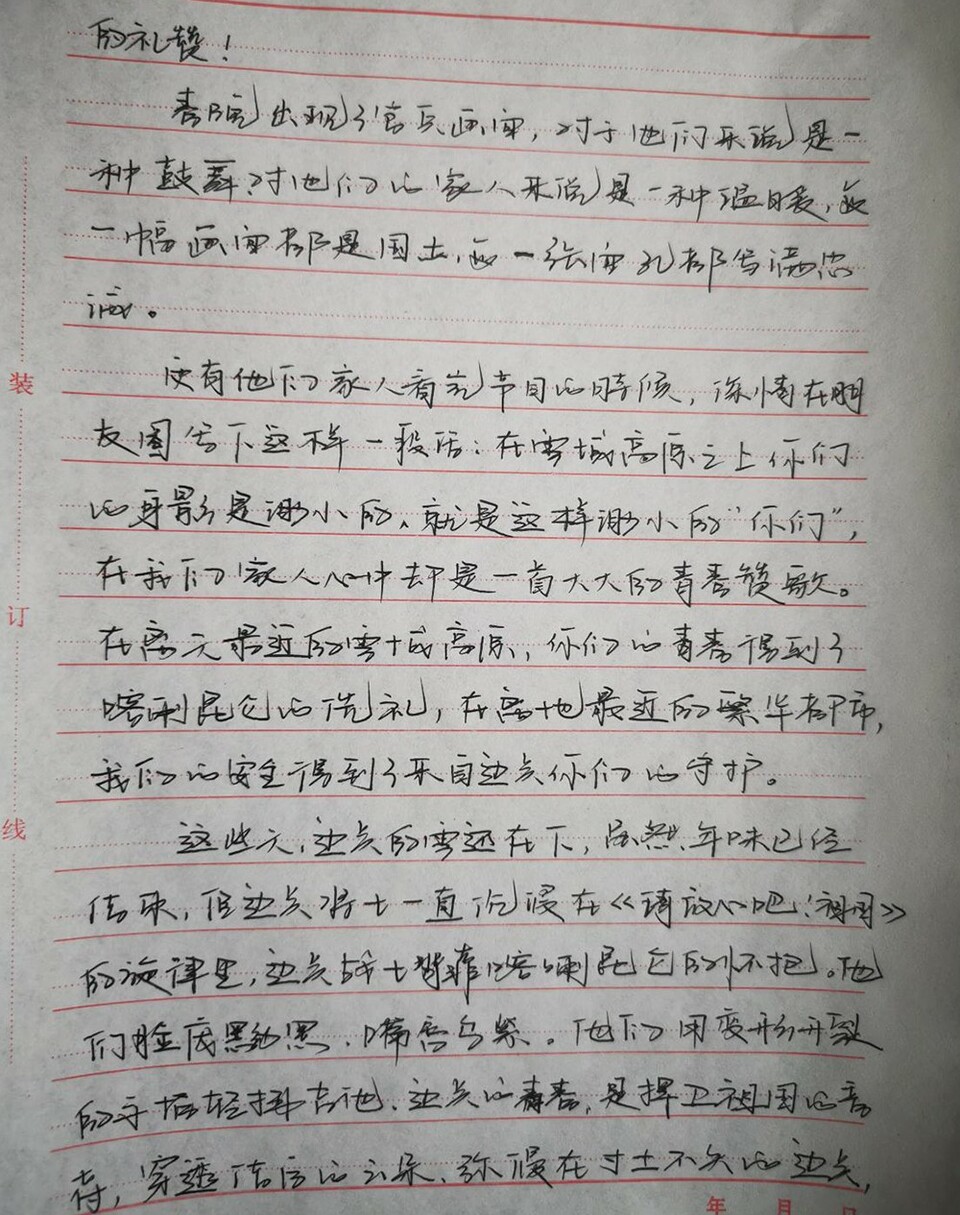 的礼赞！
春晚出现了官兵画面，对于他们来说是一
种鼓舞，对他们的家人来说是一种温暖，每
一幅画面都是国土，每一张面孔都写满忠
诚。
更有他们家人看完节目的时候，深情在朋
友圈写下这样一段话：在雪域高原之上你们
的身影是渺小的，就是这样渺小的“你们”，
在我们家人心中却是一首大大的青春赞歌。
在离天最近的雪域高原，你们的青春得到了
喀喇昆仑的洗礼，在离地最近的繁华都市，
我们的安全得到了来自边点你们的守护。
这些天，边点的雪还在下，虽然年味已经
结束，但边点将士一直沉浸在《请放心吧！祖国》
的旋律里，边点战士背靠喀喇昆仑的怀抱。他
们脸庞黝黑、嘴唇乌紫。他们用变形开裂
的手指轻拂吉他，边点的青春，是捍卫祖国的音
符，穿透的云朵，弥漫在寸土不失的边点，
装
订
线
年 月 日